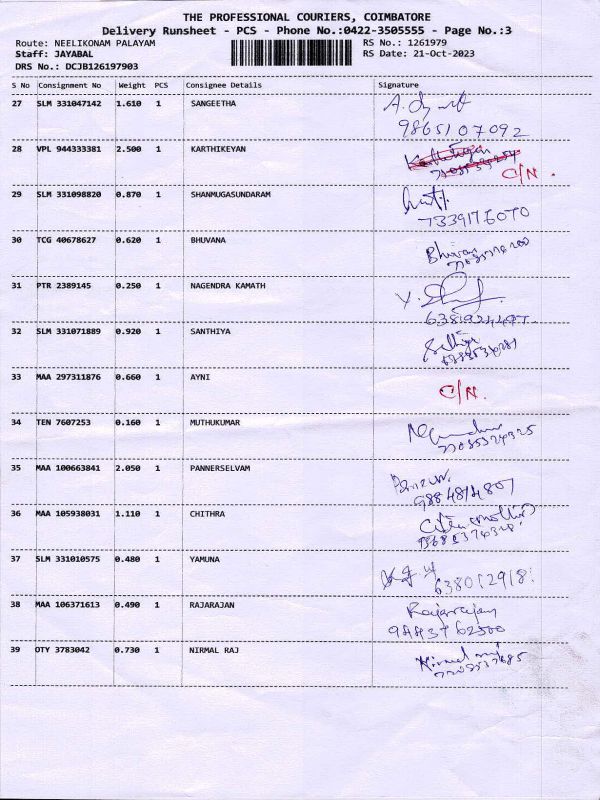 THE PROFESSIONAL COURIERS, COIMBATORE
Delivery Runsheet - PCS - Phone No.:0422-3505555 - Page No.:3
Route: NEELIKONAM PALAYAM RS No.: 1261979
Staff: JAYABAL RS Date: 21-Oct-2023
DRS No.: DCJB126197903
S No Consignment No Weight PCS Consignee Details Signature
27 SLM 331047142 1.610 1 SANGEETHA
9865107092
28 VPL 944333381 2.500 1 KARTHIKEYAN
C/N.
29 SLM 331098820 0.870 1 SHANMUGASUNDARAM
7339176070
30 TCG 40678627 0.620 1 BHUVANA
31 PTR 2389145 0.250 1 NAGENDRA KAMATH
32 SLM 331071889 0.920 1 SANTHIYA
33 MAA 297311876 0.660 1 AYNI C/N.
34 TEN 7607253 0.160 1 MUTHUKUMAR
35 MAA 100663841 2.050 1 PANNERSELVAM
9884814807
36 MAA 105938031 1.110 1 CHITHRA
37 SLM 331010575 0.480 1 YAMUNA
38 MAA 106371613 0.490 1 RAJARAJAN Rajarajan
9443762500
39 OTY 3783042 0.730 1 NIRMAL RAJ